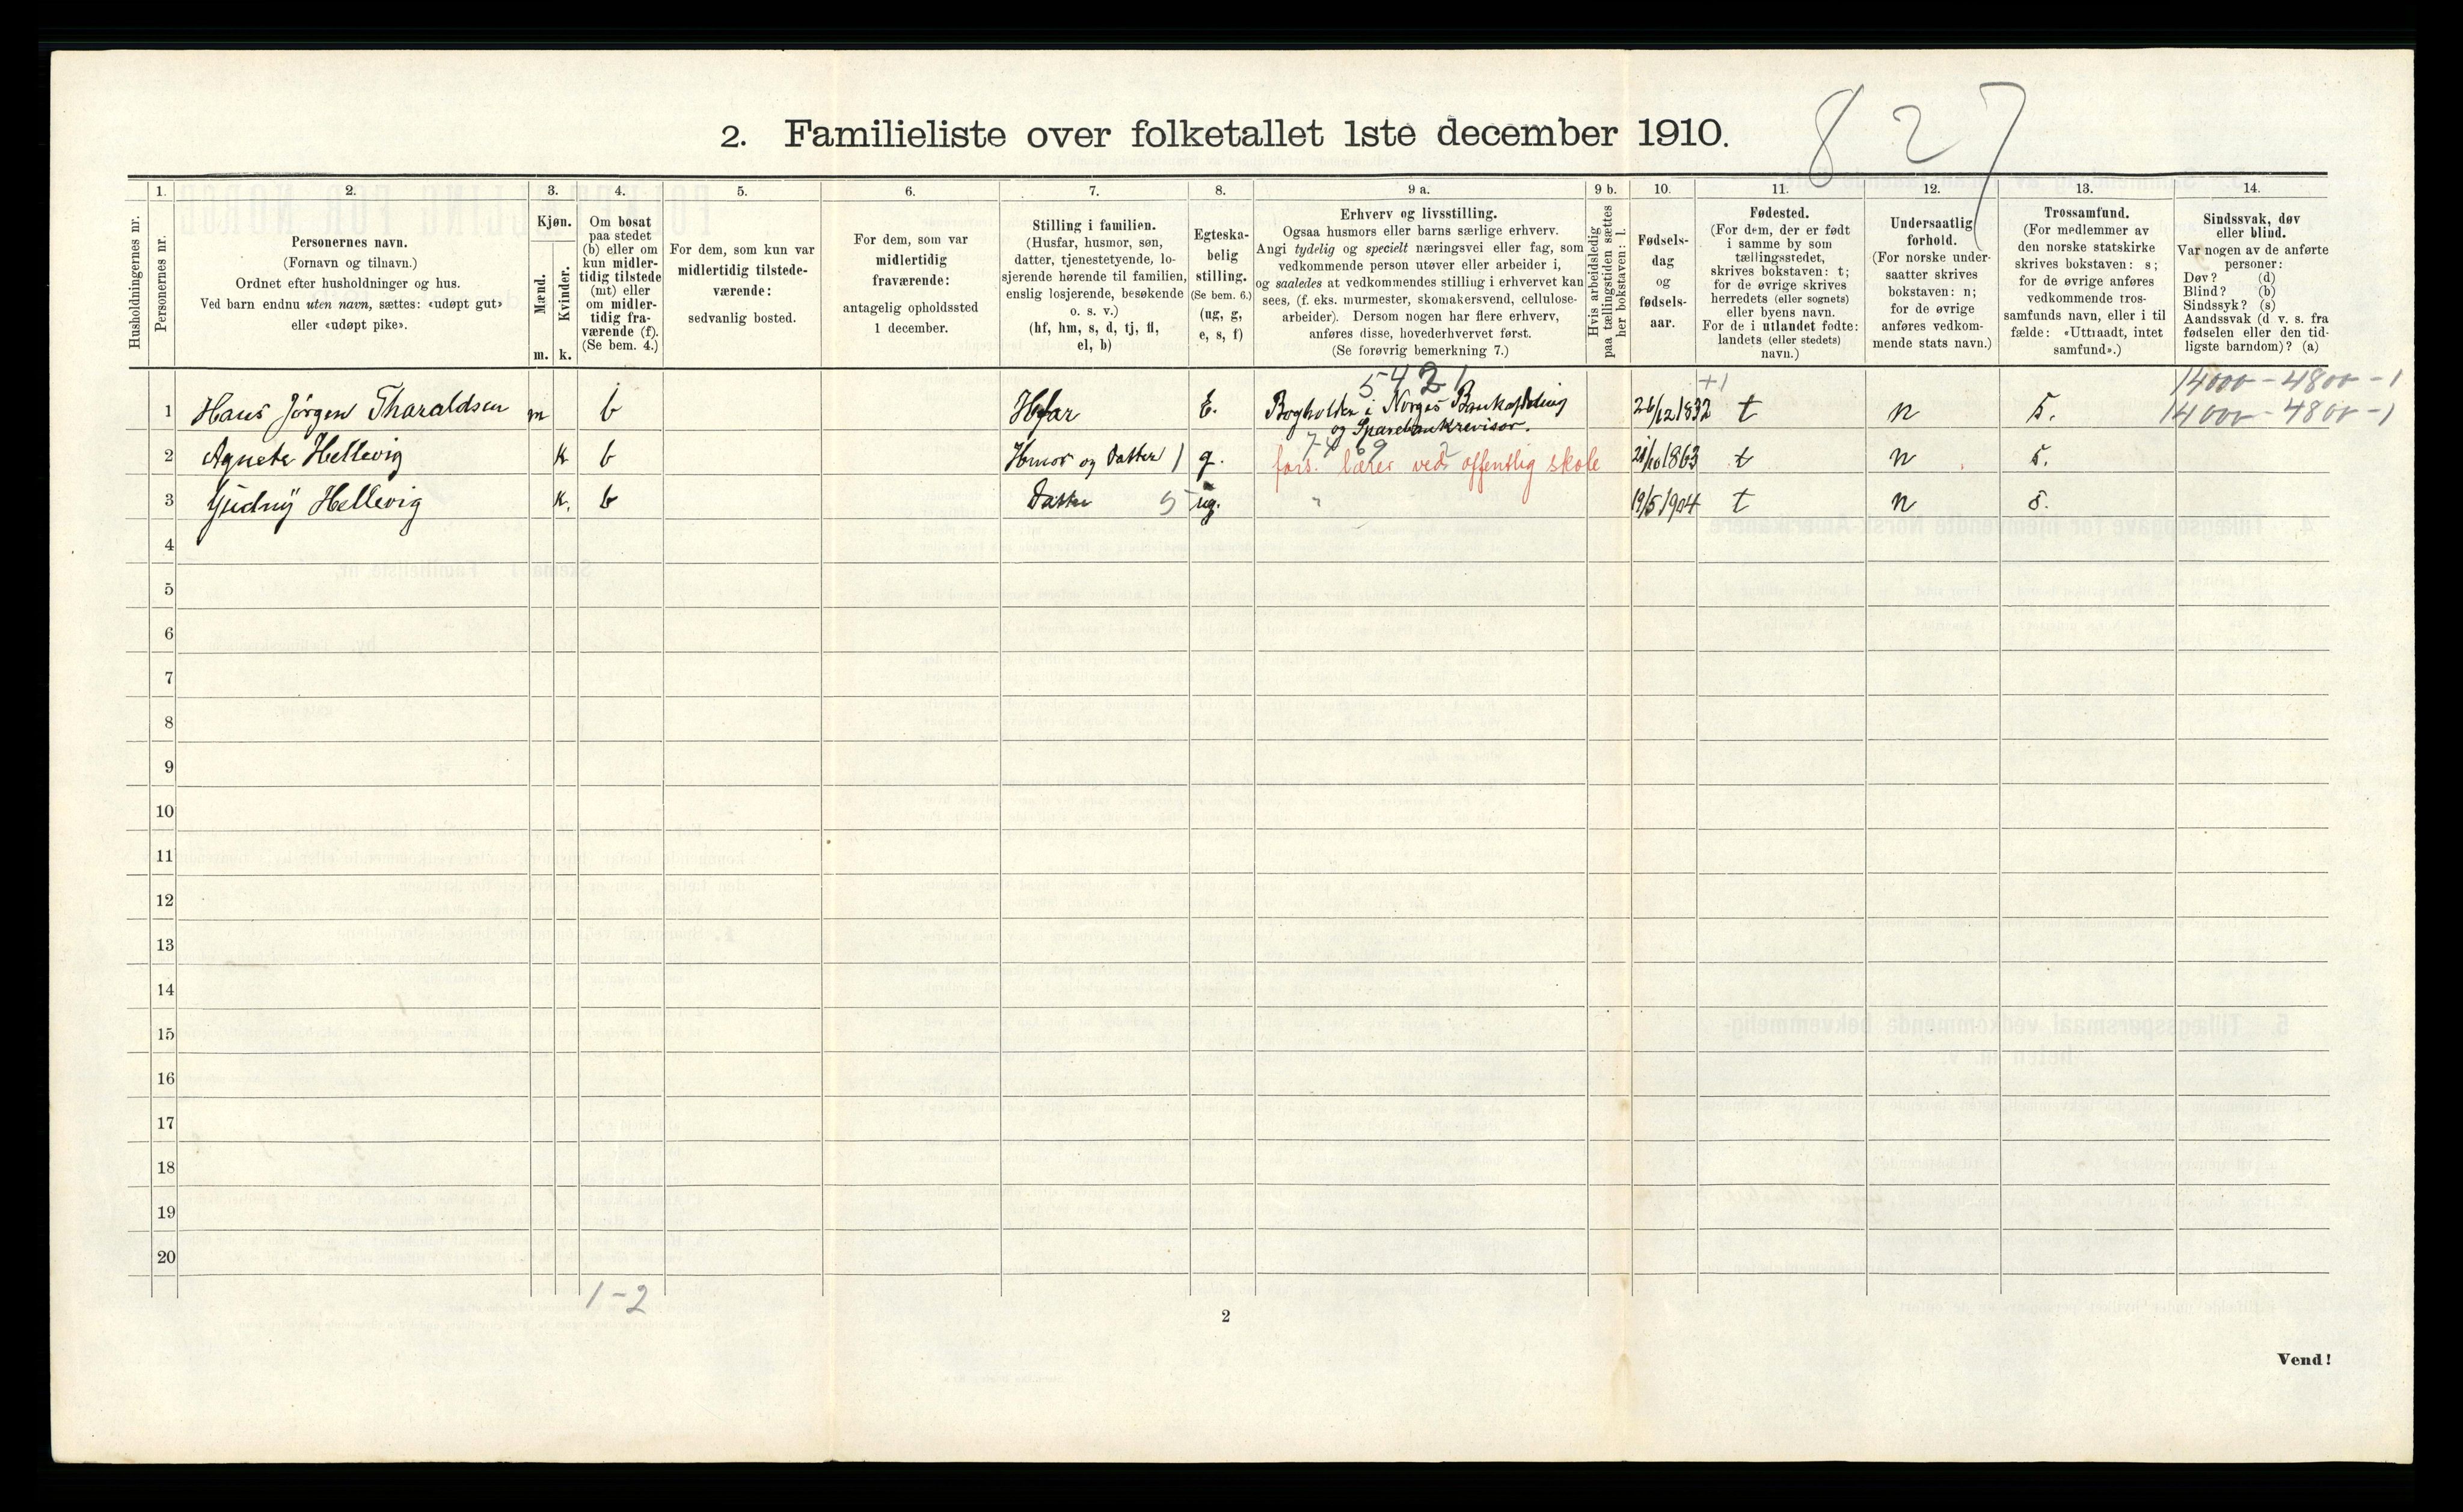 827
2. Familieliste over folketallet 1ste december 1910.
Husholdningernes nr.
1.
Personernes nr.
2.
Personernes navn.
(Fornavn og tilnavn.)
Ordnet efter husholdninger og hus.
Ved barn endnu uten navn, sættes: «udøpt gut»
eller «udøpt pike».
3.
Kjøn.
Mænd.
Kvinder.
m. k.
4.
Om bosat
paa stedet
(b) eller om
kun midler-
tidig tilstede
(mt) eller
om midler-
tidig fra-
værende (f).
(Se bem. 4.)
5.
For dem, som kun var
midlertidig tilstede-
værende:
sedvanlig bosted.
6.
For dem, som var
midlertidig
fraværende:
antagelig opholdssted
1 december.
7.
Stilling i familien.
(Husfar, husmor, søn,
datter, tjenestetyende, lo-
sjerende hørende til familien,
enslig losjerende, besøkende
o. s. v.)
(hf, hm, s, d, tj, fl,
el, b)
8.
Egteska-
belig
stilling.
(Se bem. 6.)
(ug, g,
e, s, f)
9 a.
Erhverv og livsstilling.
Ogsaa husmors eller barns særlige erhverv.
Angi tydelig og specielt næringsvei eller fag, som
vedkommende person utøver eller arbeider i,
og saaledes at vedkommendes stilling i erhvervet kan
sees, (f. eks. murmester, skomakersvend, cellulose-
arbeider). Dersom nogen har flere erhverv,
anføres disse, hovederhvervet først.
(Se forøvrig bemerkning 7.)
9 b.
Hvis arbeidsledig
paa tællingstiden sættes
her bokstaven: l.
10.
Fødsels-
dag
og
fødsels-
aar.
11.
Fødested.
(For dem, der er født
i samme by som
tællingsstedet,
skrives bokstaven: t;
for de øvrige skrives
herredets (eller sognets)
eller byens navn.
For de i utlandet fødte:
landets (eller stedets)
navn.)
12.
Undersaatlig
forhold.
(For norske under-
saatter skrives
bokstaven: n;
for de øvrige
anføres vedkom-
mende stats navn.)
13.
Trossamfund.
(For medlemmer av
den norske statskirke
skrives bokstaven: s;
for de øvrige anføres
vedkommende tros-
samfunds navn, eller i til
fælde: «Uttraadt, intet
samfund».)
14.
Sindssvak, døv
eller blind.
Var nogen av de anførte
personer:
Døv? (d)
Blind? (b)
Sindssyk? (s)
Aandssvak (d v. s. fra
fødselen eller den tid-
ligste barndom)? (a)
5421 +1 14000-4800-1
1 Hans Jørgen Tharaldsen m b Hfar E. Bogholder i Norges Bankafdeling 26/12 1832 t n s. 14000-4800-1
og Sparebankrevisor.
7469
2 Agnete Hellevig k b Hmor og datter 1 g. fors. lærer ved offentlig skole 21/10 1863 t n s.
3 Gudny Hellevig k. b datter 5 ug. " 19/5 1904 t n s.
4
5
6
7
8
9
10
11
12
13
14
15
16
17
18
19
20
1-2
2
Vend!